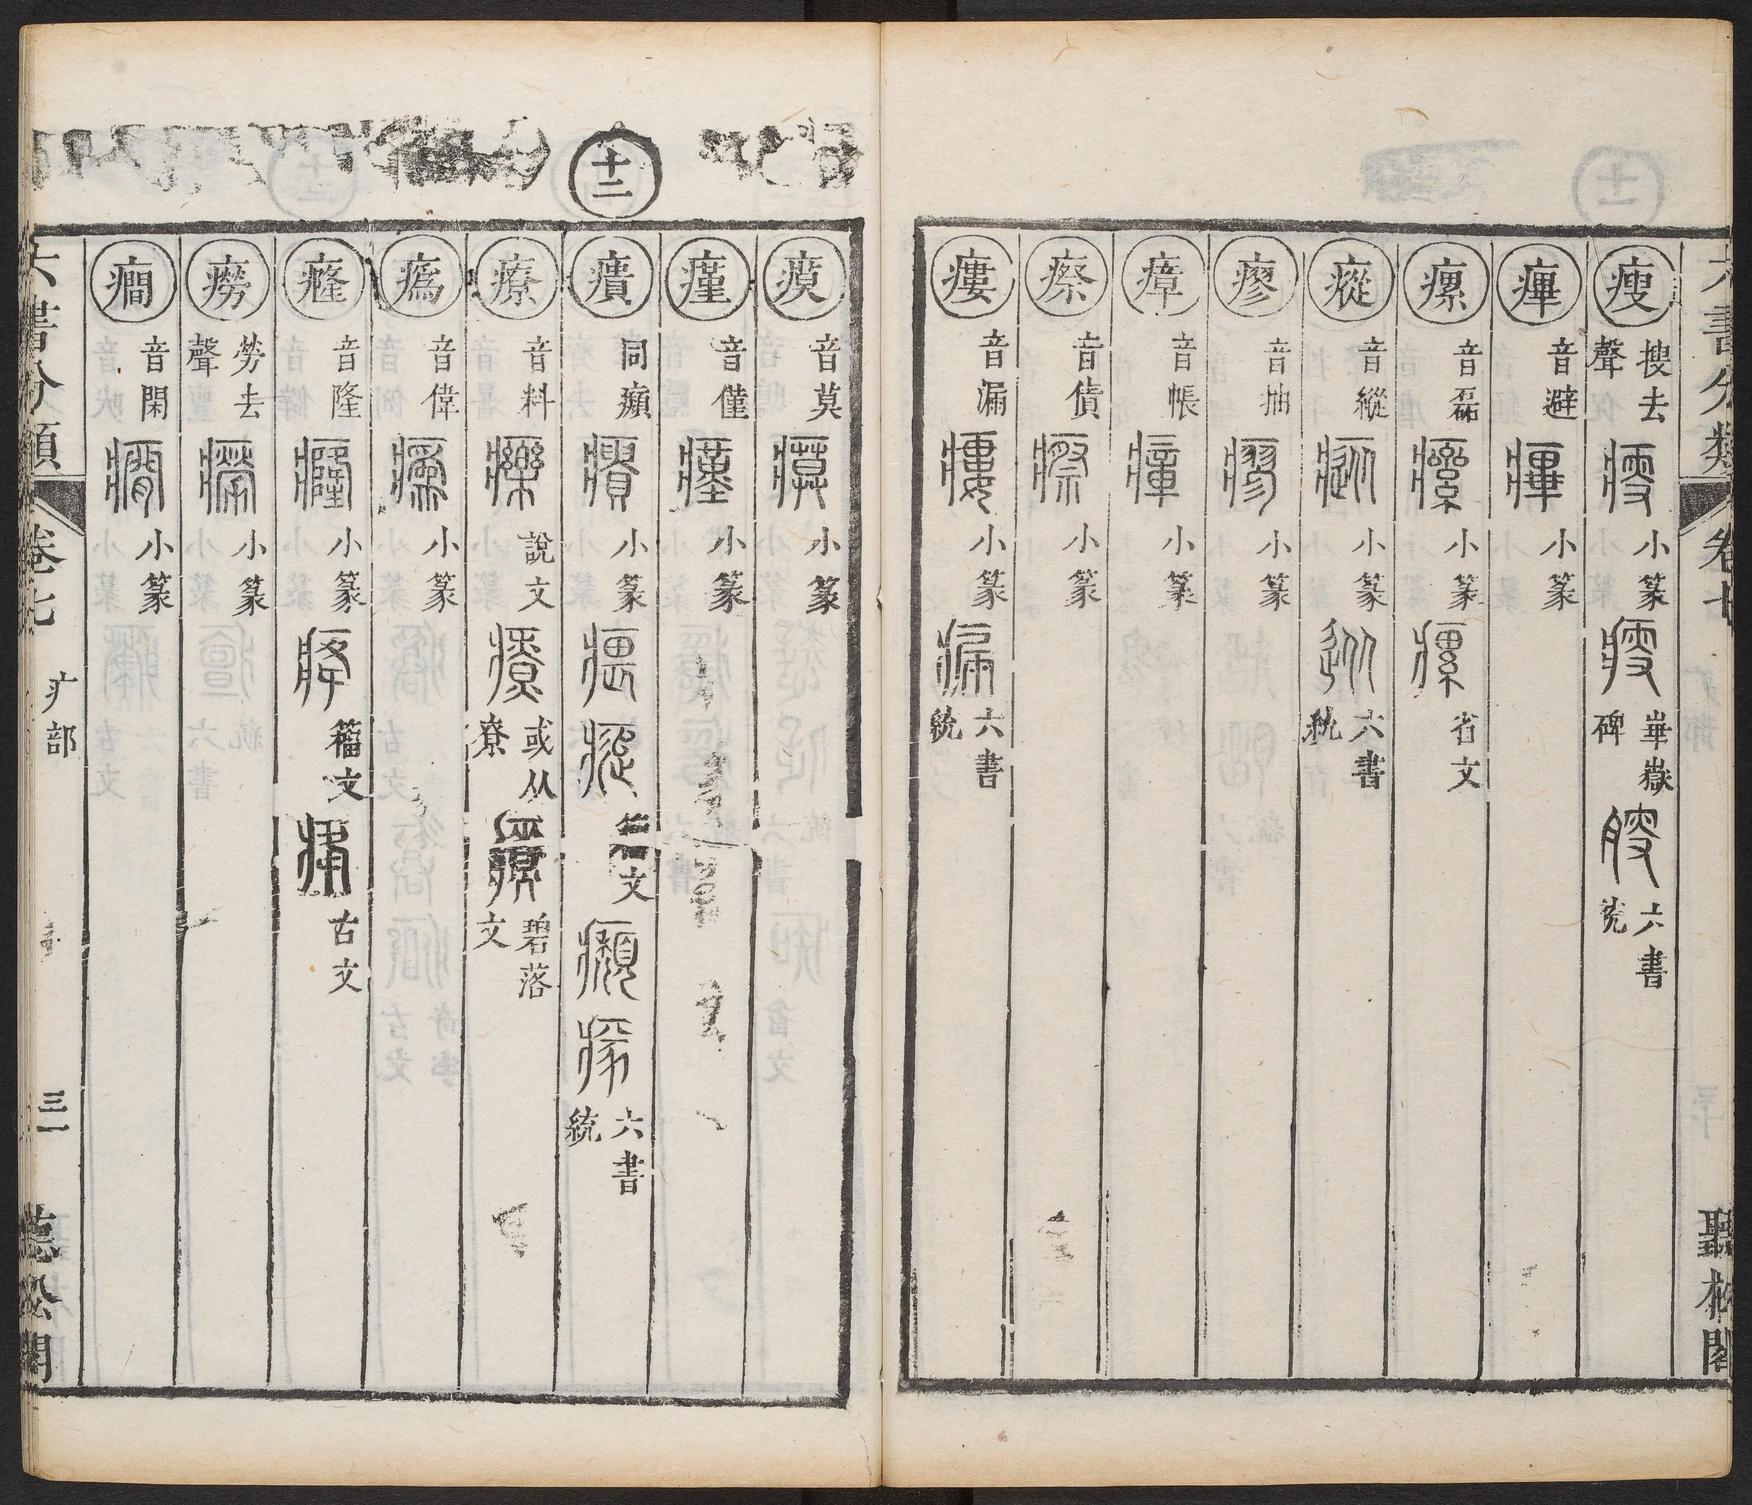 六書分類 卷七 聽松閣
瘦 搜去聲 小篆 崋嶽碑 六書統
㿙 音避 小篆
瘰 音磊 小篆 省文
瘲 音縱 小篆 六書統
瘳 音抽 小篆
瘴 音帳 小篆
瘵 音債 小篆
瘻 音漏 小篆 六書統
十二
瘼 音莫 小篆
瘽 音僅 小篆
㿉 同㿗 小篆 文 六書統
療 音料 說文 或从尞 碧落文
㾻 音偉 小篆
癃 音隆 小篆 籀文 古文
癆 勞去聲 小篆
癎 音閑 小篆
六書分類 卷七 疒部 三一 聽松閣